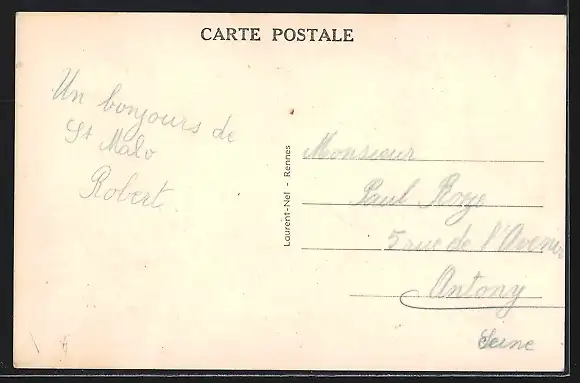 CARTE POSTALE
Un bonjours de
St Malo
Robert
Laurent-Nel - Rennes
Monsieur
Paul
5 rue de l'Avenir
Antony
Seine